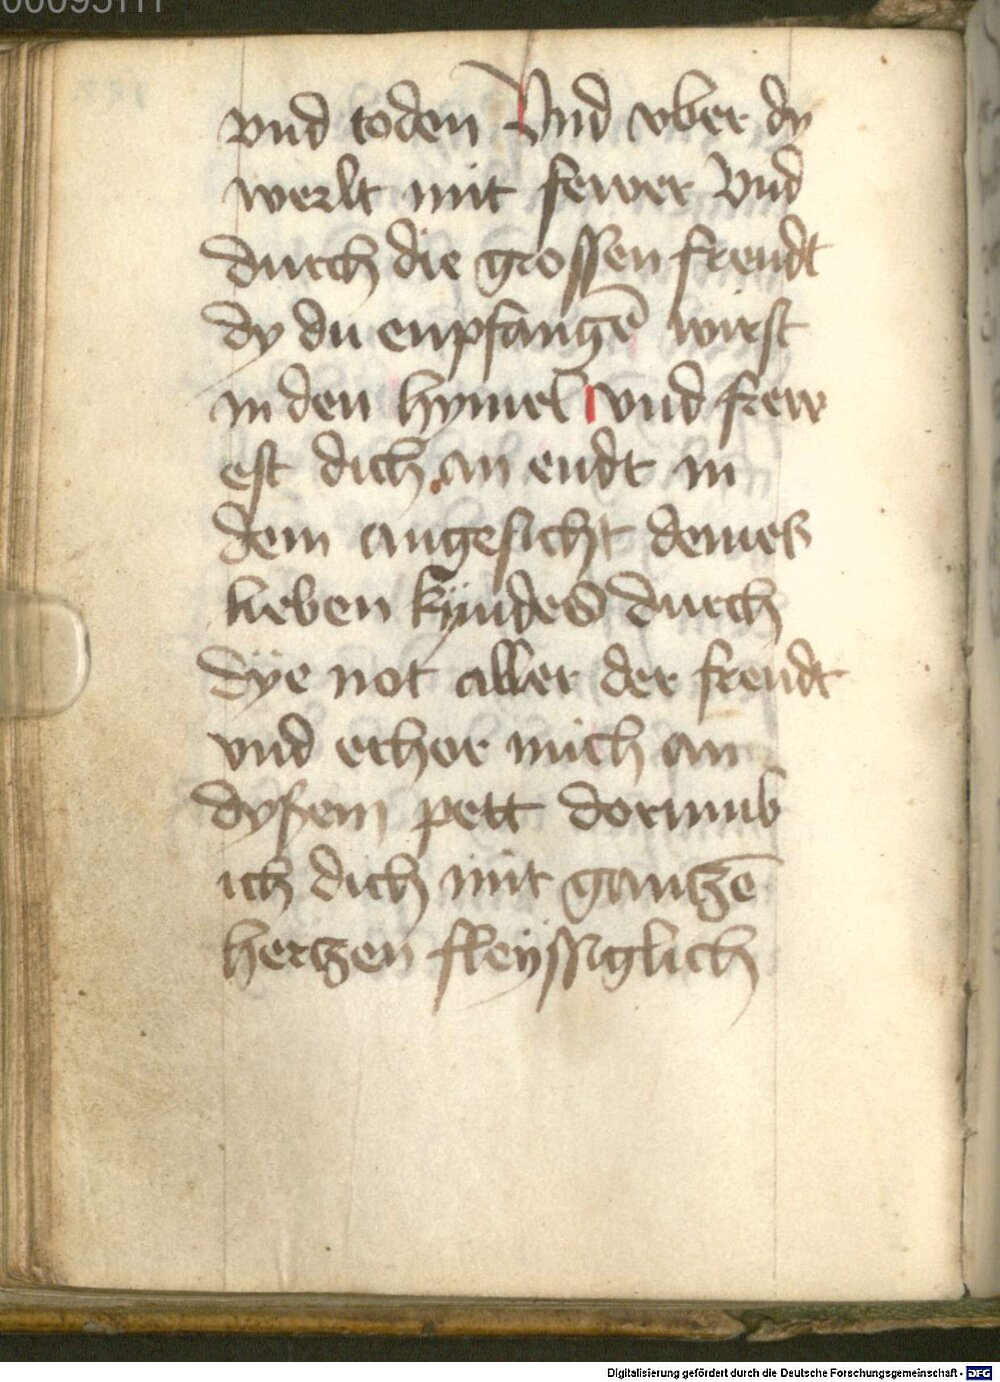 vnd toden Vnd vber dy
werlt mit fewer Vnd
durch die grossen freudt
dy du enpfangē wirst
in den hymel vnd frew
est dich an endt in
dem angesicht deines
lieben kÿndes durch
dÿe not aller der freudt
vnd erhor mich an
dysem pett dorumb
ich dich mit gantzē
hertzen fleÿssiglich
Digitalisierung gefördert durch die Deutsche Forschungsgemeinschaft - DFG